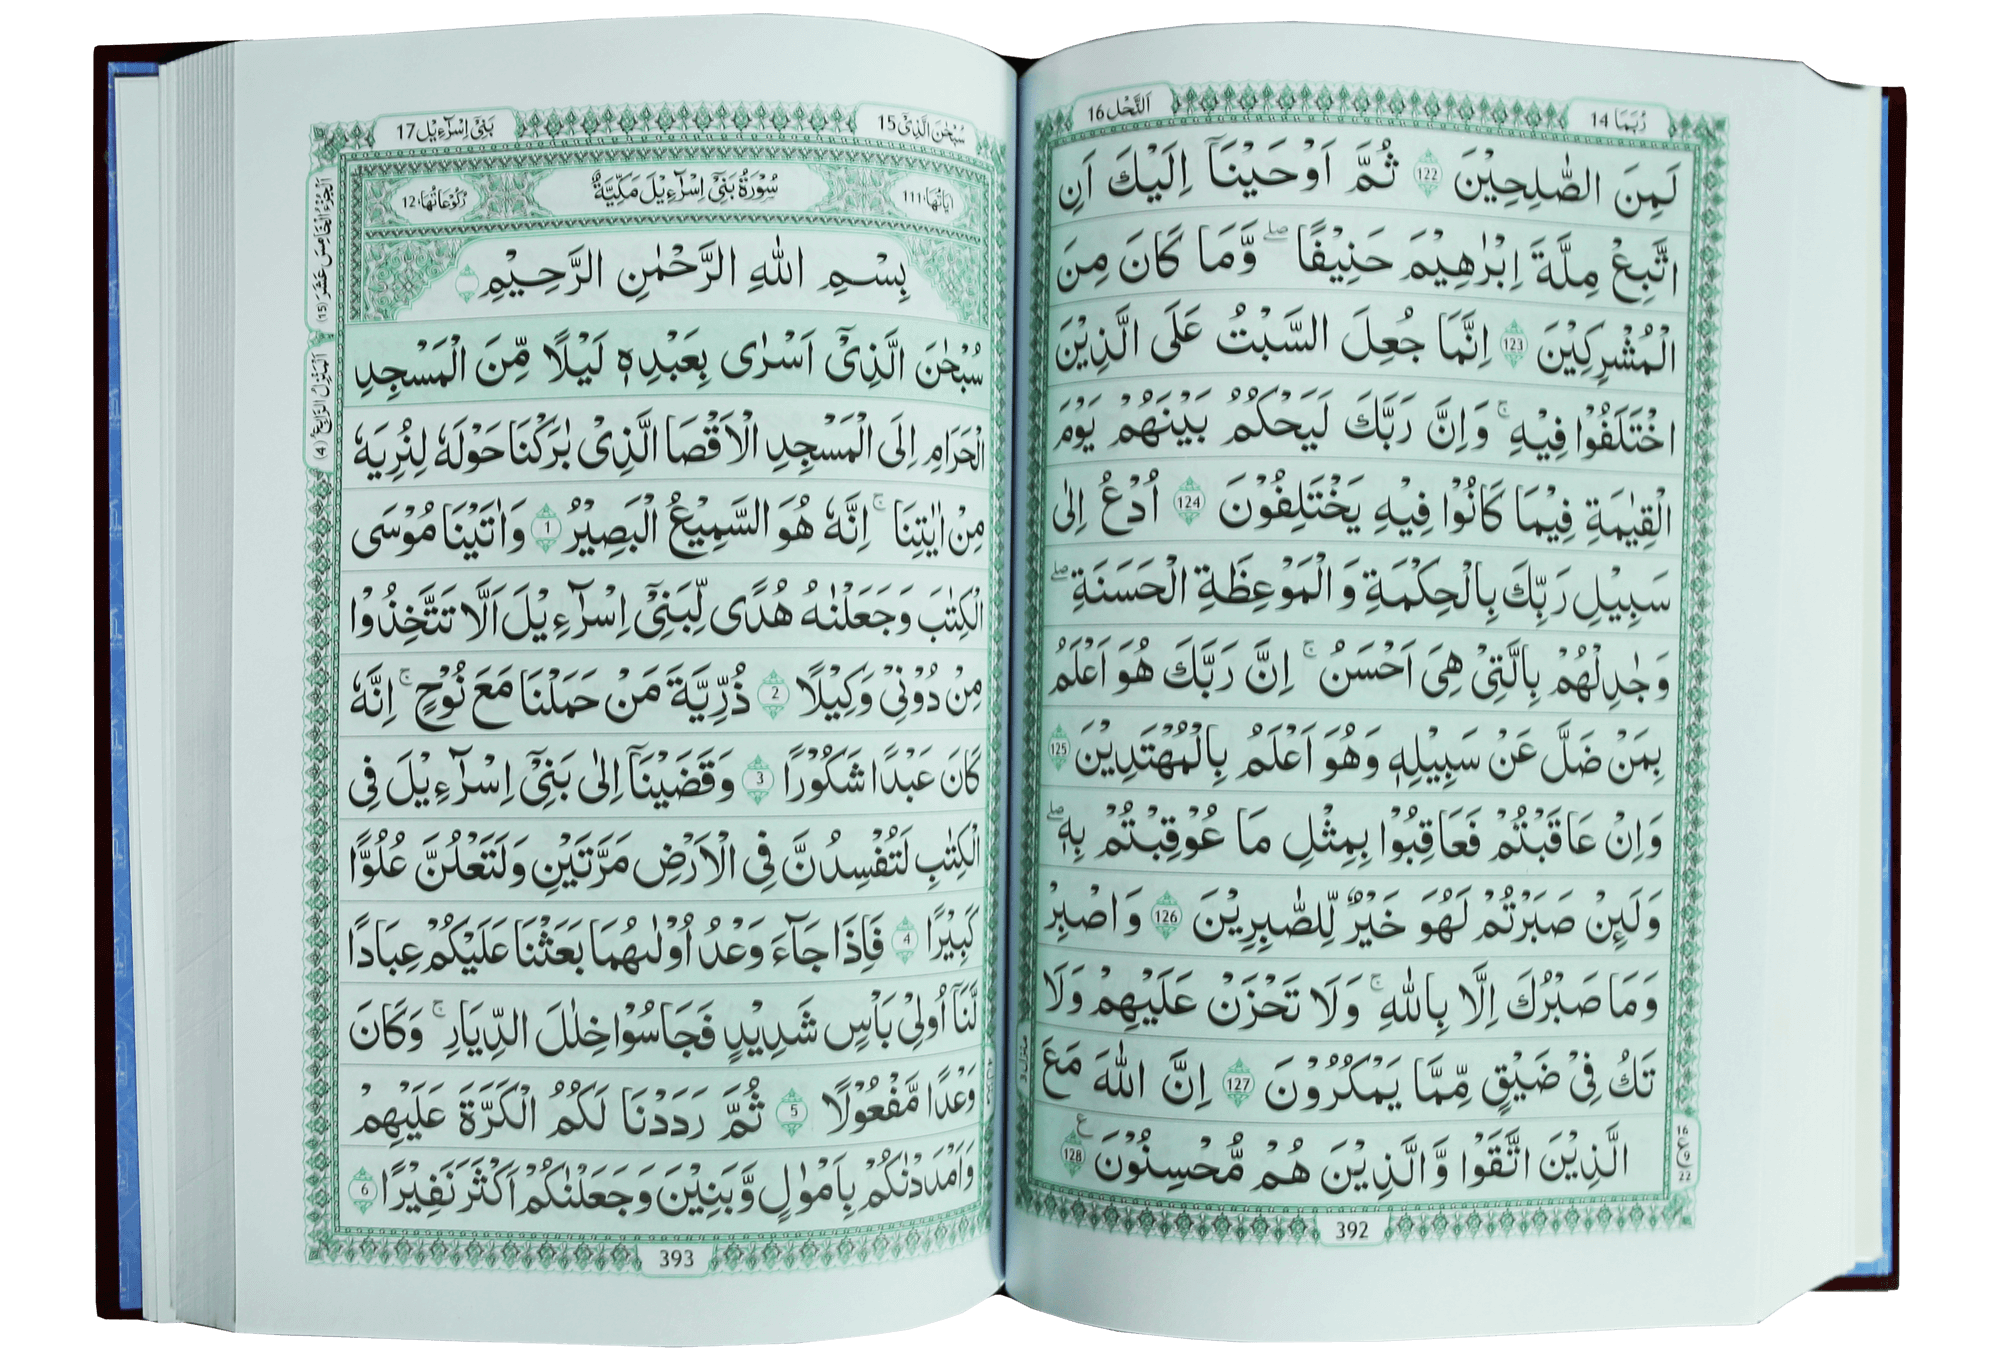 رُبَمَا 14
اَلنَّحْل 16
لَمِنَ الصّٰلِحِيْنَ 122 ثُمَّ اَوْحَيْنَاۤ اِلَيْكَ اَنِ
اتَّبِعْ مِلَّةَ اِبْرٰهِيْمَ حَنِيْفًا ۖ وَّمَا كَانَ مِنَ
الْمُشْرِكِيْنَ 123 اِنَّمَا جُعِلَ السَّبْتُ عَلَى الَّذِيْنَ
اخْتَلَفُوْا فِيْهِ ۚ وَاِنَّ رَبَّكَ لَيَحْكُمُ بَيْنَهُمْ يَوْمَ
الْقِيٰمَةِ فِيْمَا كَانُوْا فِيْهِ يَخْتَلِفُوْنَ 124 اُدْعُ اِلٰى
سَبِيْلِ رَبِّكَ بِالْحِكْمَةِ وَالْمَوْعِظَةِ الْحَسَنَةِ ۖ
وَجَادِلْهُمْ بِالَّتِيْ هِيَ اَحْسَنُ ۚ اِنَّ رَبَّكَ هُوَ اَعْلَمُ
بِمَنْ ضَلَّ عَنْ سَبِيْلِهٖ وَهُوَ اَعْلَمُ بِالْمُهْتَدِيْنَ 125
وَاِنْ عَاقَبْتُمْ فَعَاقِبُوْا بِمِثْلِ مَا عُوْقِبْتُمْ بِهٖ ۖ
وَلَىِٕنْ صَبَرْتُمْ لَهُوَ خَيْرٌ لِّلصّٰبِرِيْنَ 126 وَاصْبِرْ
وَمَا صَبْرُكَ اِلَّا بِاللّٰهِ ۚ وَلَا تَحْزَنْ عَلَيْهِمْ وَلَا
تَكُ فِيْ ضَيْقٍ مِّمَّا يَمْكُرُوْنَ 127 اِنَّ اللّٰهَ مَعَ
الَّذِيْنَ اتَّقَوْا وَّالَّذِيْنَ هُمْ مُّحْسِنُوْنَ 128 ع
16
ع 9
22
392
سُبْحٰنَ الَّذِيْ 15
بَنِيْ اِسْرَآءِيْل 17
اٰيَاتُهَا: 111
سُوْرَةُ بَنِيْۤ اِسْرَآءِيْلَ مَكِّيَّةٌ
رُكُوْعَاتُهَا: 12
بِسْمِ اللّٰهِ الرَّحْمٰنِ الرَّحِيْمِ
سُبْحٰنَ الَّذِيْۤ اَسْرٰى بِعَبْدِهٖ لَيْلًا مِّنَ الْمَسْجِدِ
الْحَرَامِ اِلَى الْمَسْجِدِ الْاَقْصَا الَّذِيْ بٰرَكْنَا حَوْلَهٗ لِنُرِيَهٗ
مِنْ اٰيٰتِنَا ۚ اِنَّهٗ هُوَ السَّمِيْعُ الْبَصِيْرُ 1 وَاٰتَيْنَا مُوْسَى
الْكِتٰبَ وَجَعَلْنٰهُ هُدًى لِّبَنِيْۤ اِسْرَآءِيْلَ اَلَّا تَتَّخِذُوْا
مِنْ دُوْنِيْ وَكِيْلًا 2 ذُرِّيَّةَ مَنْ حَمَلْنَا مَعَ نُوْحٍ ۚ اِنَّهٗ
كَانَ عَبْدًا شَكُوْرًا 3 وَقَضَيْنَاۤ اِلٰى بَنِيْۤ اِسْرَآءِيْلَ فِى
الْكِتٰبِ لَتُفْسِدُنَّ فِى الْاَرْضِ مَرَّتَيْنِ وَلَتَعْلُنَّ عُلُوًّا
كَبِيْرًا 4 فَاِذَا جَآءَ وَعْدُ اُوْلٰىهُمَا بَعَثْنَا عَلَيْكُمْ عِبَادًا
لَّنَاۤ اُولِيْ بَاْسٍ شَدِيْدٍ فَجَاسُوْا خِلٰلَ الدِّيَارِ ۚ وَكَانَ
وَعْدًا مَّفْعُوْلًا 5 ثُمَّ رَدَدْنَا لَكُمُ الْكَرَّةَ عَلَيْهِمْ
وَاَمْدَدْنٰكُمْ بِاَمْوَالٍ وَّبَنِيْنَ وَجَعَلْنٰكُمْ اَكْثَرَ نَفِيْرًا 6
اَلْجُزْءُ الْخَامِسَ عَشَرَ (15)
اَلْمَنْزِلُ الرَّابِعُ (4)
393